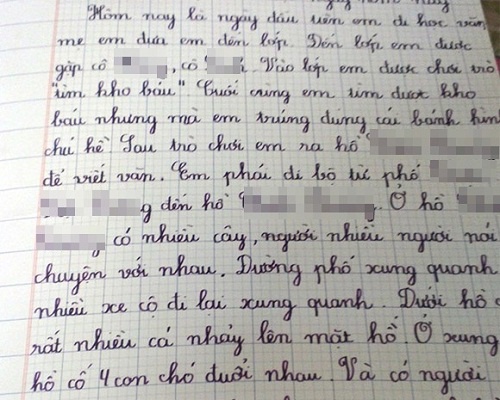 Hôm nay là ngày đầu tiên em đi học văn
mẹ em đưa em đến lớp. Đến lớp em được
gặp cô, cô. Vào lớp em được chơi trò
"tìm kho báu" Cuối cùng em tìm được kho
báu nhưng mà em trúng đúng cái bánh hìn
chú hề Sau trò chơi em ra hồ
để viết văn. Em phải đi bộ từ phố
g đến hồ. Ở hồ
có nhiều cây, người nhiều người nói
chuyện với nhau. Đường phố xung quanh
nhiều xe cộ đi lại xung quanh. Dưới hồ c
rất nhiều cá nhảy lên mặt hồ. Ở xung
hồ cố 4 con chó đuổi nhau. Và có người